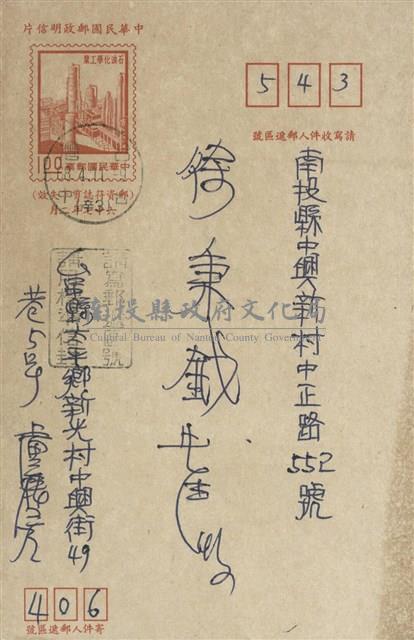 中華民國郵政明信片
石油化學工業
100
中華民國郵票
(郵資符誌剪下失效)
六十七年二月
543
請寫收件人郵遞區號
南投縣中興新村中正路
552號
徐秉鉞先生收
縣太平鄉新光村中興街49
巷5號
盧
406
寄件人郵遞區號
南投縣政府文化局
Cultural Bureau of Nantou County Government